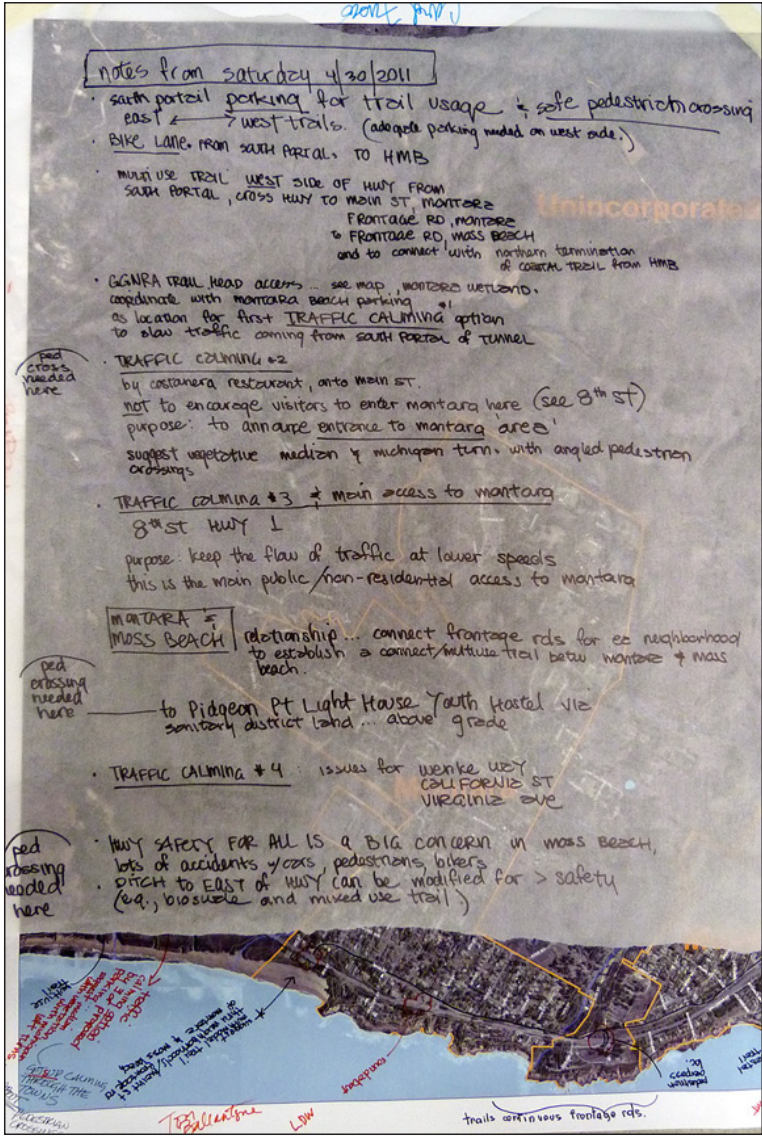 notes from saturday 4/30/2011
• south portail parking for trail usage & safe pedestrich crossing
east ⟷ west trails. (adequate parking needed on west side.)
• BIKE LANE. FROM SOUTH PORTAL. TO HMB
• multi use TRAIL WEST SIDE OF HWY FROM
SOUTH PORTAL, CROSS HWY TO MAIN ST, MONTARA
FRONTAGE RD, MONTARA
to FRONTAGE RD, MOSS BEACH
and to connect with northern termination
of COASTAL TRAIL from HMB
Unincorporated
• GGNRA TRAIL HEAD access... see map, MONTARA WETLAND.
coordinate with MONTARA BEACH parking
as location for first TRAFFIC CALMING #1 option
to slow traffic coming from SOUTH PORTAL of TUNNEL
ped
cross
needed
here
• TRAFFIC CALMING #2
by costanera restaurant, onto main ST.
not to encourage visitors to enter montara here (see 8th st)
purpose: to announce entrance to montara 'area'
suggest vegetative median & michigan turn. with angled pedestrian
crossings
• TRAFFIC CALMING #3 & main access to montara
8th ST HWY 1
purpose: keep the flow of traffic at lower speeds
this is the main public/non-residential access to montara
MONTARA &
MOSS BEACH
relationship... connect frontage rds for ea neighborhood
to establish a connect/multiuse trail betw montara & moss
beach.
ped
crossing
needed
here
to Pidgeon Pt Light House Youth Hostel via
sanitary district land... above grade
• TRAFFIC CALMING #4: issues for wenke WAY
CALIFORNIA ST
VIRGINIA AVE
ped
crossing
needed
here
• HWY SAFETY FOR ALL IS a BIG CONCERN in MOSS BEACH,
lots of accidents w/cars, pedestrians, bikers
• DITCH to EAST of HWY can be modified for > safety
(e.g., bioswale and mixed use trail)
roundabout
pedestrian
CALMING
THROUGH THE
TOWNS
PEDESTRIAN
Ballantyne
LDW
trails continuous frontage rds.